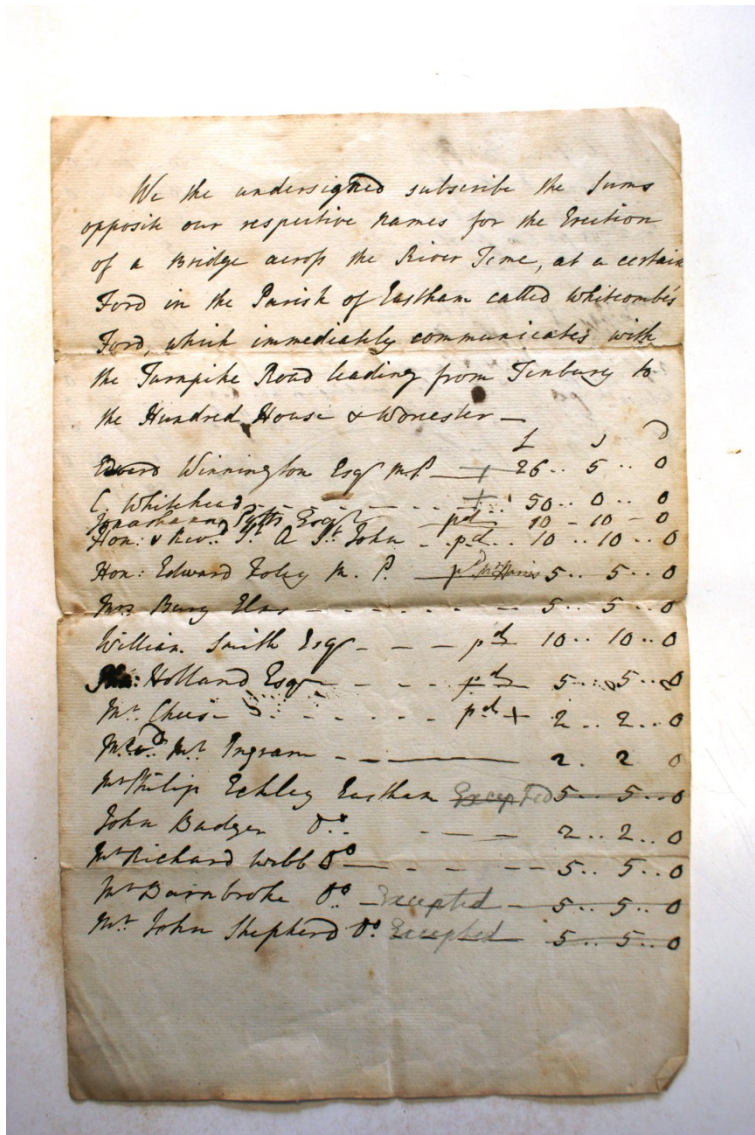 We the undersigned subscribe the Sums
opposite our respective Names for the Erection
of a Bridge across the River Teme, at a certain
Ford in the Parish of Eastham called Whitcombe's
Ford, which immediately communicates with
the Turnpike Road leading from Tenbury to
the Hundred House & Worcester —
£ s d
Edward Winnington Esqr M.P. — + 26 .. 5 .. 0
C. Whitehead - - - - - + 50 .. 0 .. 0
Pytts Esqr - pd 10 - 10 - 0
Hon: & Revd. St. A St. John - pd. 10 .. 10 .. 0
Hon: Edward Foley M. P. pd 5 .. 5 .. 0
Mrs - - - - - - 5 .. 5 .. 0
William Smith Esqr - - - pd 10 .. 10 .. 0
Holland Esqr - - - pd 5 .. 5 .. 0
Mr. - - - - - pd + 2 .. 2 .. 0
Mr. Ingram - — 2 .. 2 0
Mr Philip Eastham Excepted 5 .. 5 .. 0
John Badger Do. - - - 2 .. 2 .. 0
Mr Richard Webb Do — - - - - 5 .. 5 .. 0
Mr Barnbroke Do. Excepted - 5 .. 5 .. 0
Mr. John Shepherd Do. Excepted 5 .. 5 .. 0